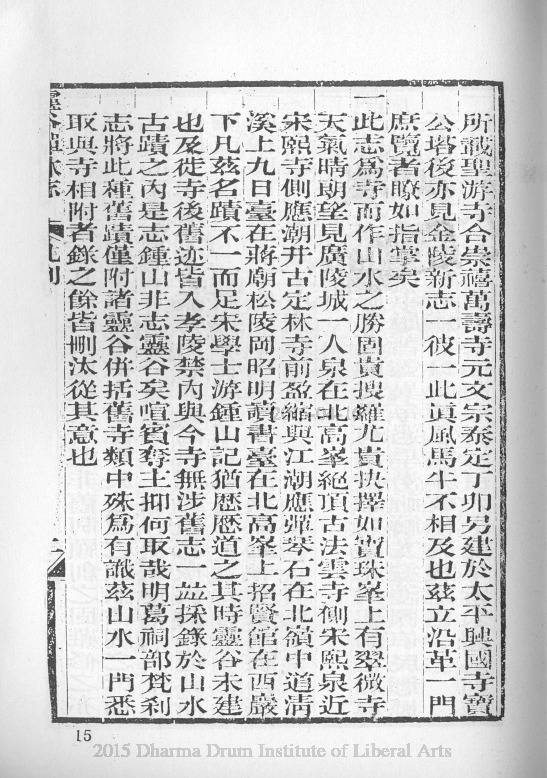 所載聖游寺合崇禧萬壽寺元文宗泰定丁卯另建於太平興國寺寶
公塔後亦見金陵新志一彼一此眞風馬牛不相及也茲立沿革一門
庶覽者瞭如指掌矣
一此志為寺而作山水之勝固貴搜羅尤貴抉擇如寶珠峯上有翠微寺
天氣晴朗望見廣陵城一人泉在北高峯絕頂古法雲寺側宋熙泉近
宋熙寺側應潮井古定林寺前盈縮與江潮應彈琴石在北嶺中道淸
溪上九日臺在蔣廟松陵岡昭明讀書臺在北高峯上招賢館在西巖
下凡茲名蹟不一而足宋學士游鍾山記猶歷歷道之其時靈谷未建
也及徙寺後舊迹皆入孝陵禁內與今寺無涉舊志一並採錄於山水
古蹟之內是志鍾山非志靈谷矣喧賓奪主抑何取哉明葛祠部梵刹
志將此種舊蹟僅附諸靈谷併括舊寺類中殊爲有識茲山水一門悉
取與寺相附者錄之餘皆刪汰從其意也
靈谷禪林志
凡例
15
2015 Dharma Drum Institute of Liberal Arts